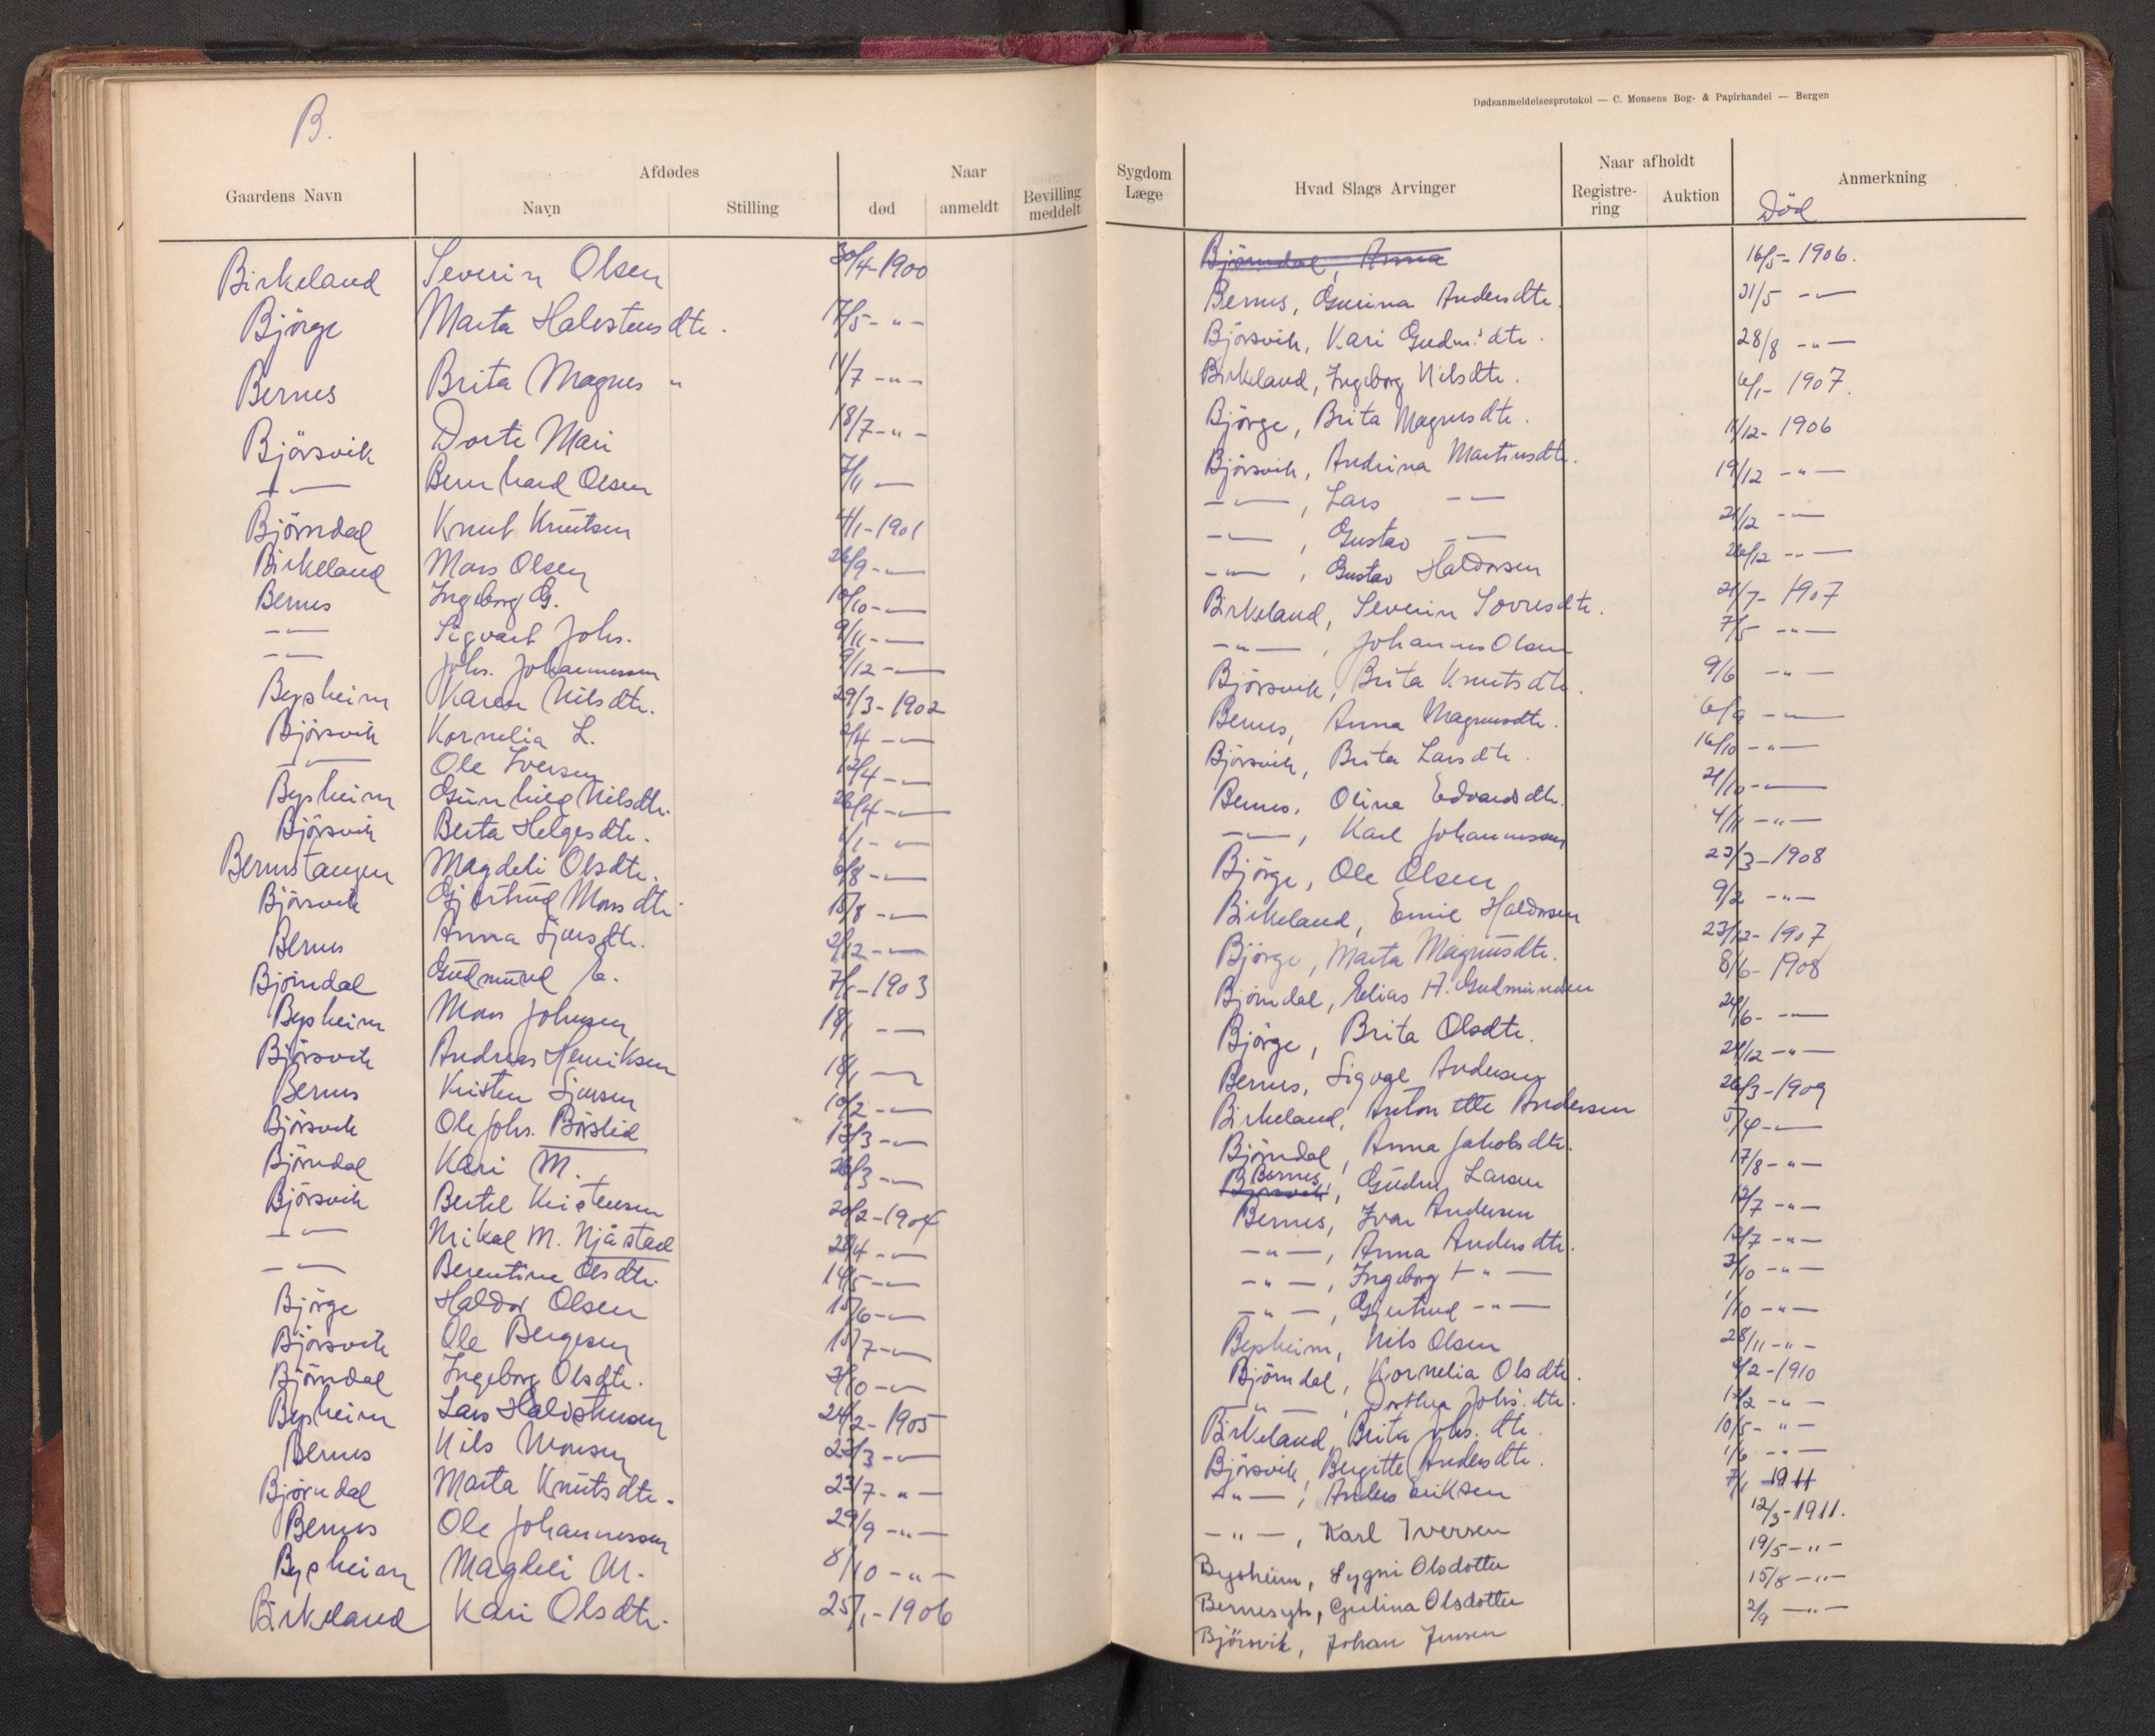 B.
Dødsanmeldelsesprotokol — C. Monsens Bog- & Papirhandel — Bergen
Gaardens Navn
Afdødes
Navn
Stilling
Naar
død
anmeldt
Bevilling meddelt
Birkeland Severin Olsen 30/4-1900
Björge Marta Halstensdtr. 17/5- " -
Bernes Brita Magnes " 11/7 - " -
Björsvik Dorte Mari 18/7- " -
— " — Bernhard Olsen 7/11 —
Björndal Knut Knutsen 4/1-1901
Birkeland Mons Olsen 26/9- —
Bernes Ingeborg G. 10/10- —
— " — Sigvart Johs. 9/11- —
— " — Johs. Johannessen 9/12- —
Bysheim Karen Nilsdtr. 29/3-1902
Björsvik Kornelia L. 2/4 - —
— " — Ole Iversen 12/4- —
Bysheim Gunhild Nilsdtr. 26/4- —
Björsvik Berta Helgesdtr. 1/1- —
Bernestangen Magdeli Olsdtr. 6/8- —
Björsvik Gjertrud Monsdtr. 15/8 - —
Bernes Anna Sjursdtr. 2/12- —
Björndal Gudmund 7/1-1903
Bysheim Mons Johnsen 18/1 - —
Björsvik Andreas Henriksen 18/1 —
Bernes Kristen Sjursen 10/2- —
Björsvik Ole Johs. Börslid 13/3- —
Björndal Kari M. 26/3- —
Björsvik Bertel Kristensen 20/2-1904
— " — Mikal M. Njåstad 28/4- —
— " — Berentine Olsdtr. 14/5- —
Björge Haldor Olsen 15/6- —
Björsvik Ole Bergesen 15/7- —
Björndal Ingeborg Olsdtr. 3/10- —
Bysheim Lars Haldstensen 24/2-1905
Bernes Nils Monsen 23/3- —
Björndal Marta Knutsdtr. 23/7- " -
Bernes Ole Johannessen 29/9 - " -
Bysheim Magdeli M. 8/10 - " -
Birkeland Kari Olsdtr. 25/1-1906
Sygdom Læge
Hvad Slags Arvinger
Naar afholdt
Registrering
Auktion
Anmerkning
Död
Björndal, Anna 16/5-1906.
Bernes, Gurina Andersdtr. 31/5 - —
Björsvik, Kari Gudm.'dtr. 28/8 - " —
Birkeland, Ingeborg Nilsdtr. 6/1- 1907.
Björge, Brita Magnusdtr. 11/12-1906
Björsvik, Andrina Martinsdtr. 19/12 - " —
— " —, Lars — " — 21/12 - —
— " —, Gustav — " — 26/12 - " —
— " —, Gustav Haldorsen 21/7- 1907
Birkeland, Severin Sovresdtr. 7/5 - " —
— " —, Johannes Olsen 9/6 - " —
Björsvik, Brita Knutsdtr. 6/9 - " —
Bernes, Anna Magnusdtr. 16/10 - " —
Björsvik, Brita Larsdtr. 21/10 - —
Bernes, Olina Edvardsdtr. 4/11 - " —
— " —, Karl Johannessen 23/3-1908
Björge, Ole Olsen 9/2 - " —
Birkeland, Emil Haldorsen 23/12-1907
Björge, Marta Magnusdtr. 8/6-1908
Björndal, Elias A. Gudmundsen 24/6- —
Björge, Brita Olsdtr. 24/12 - " —
Bernes, Sigval Andersen 26/3-1909
Birkeland, Anton Andersen 5/4- —
Björndal, Anna Jakobsdtr. 17/8 - " —
Björsvik Bernes, Gudm. Larsen 12/7 - " —
Bernes, Ivar Andersen 12/7 - " —
— " —, Anna Andersdtr. 3/10 - " —
— " —, Ingeborg — " — 1/10 - " —
— " —, Gjertrud — " — 28/11 - " -
Bysheim, Nils Olsen 4/2-1910
Björndal, Kornelia Olsdtr. 12/2 - " —
— " —, Dorthea Johs.dtr. 10/5- " —
Birkeland, Brita Johs. dtr. 1/6 - " —
Björsvik, Bergitte Andersdtr. 7/1 1911
— " —, Anders Eriksen 12/3-1911.
— " —, Karl Iversen 19/5- " -
Bysheim, Sygni Olsdotter 15/8 - " -
Bernesyh, Gulina Olsdotter 2/9 - " -
Björsvik, Johan Jensen